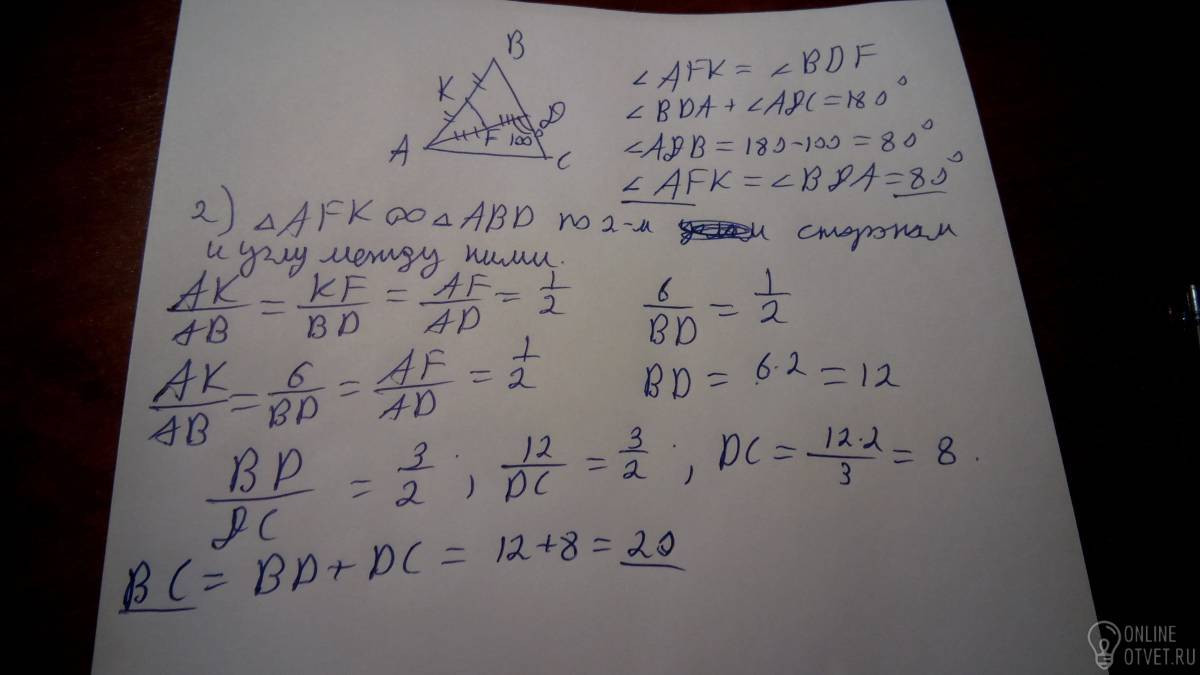 B
K
D
F
100°
A
C
∠AFK = ∠BDF
∠BDA + ∠ADC = 180°
∠ADB = 180-100 = 80°
∠AFK = ∠BDA = 80°
2) △AFK ∞ △ABD по 2-м сторонам
и углу между ними.
AK/AB = KF/BD = AF/AD = 1/2
6/BD = 1/2
AK/AB = 6/BD = AF/AD = 1/2
BD = 6·2 = 12
BD/DC = 3/2 ; 12/DC = 3/2 ; DC = 12·2/3 = 8.
BC = BD + DC = 12+8 = 20
ONLINE
OTVET.RU